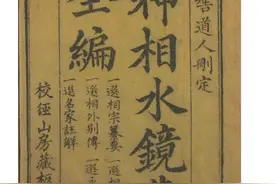 道人刪定
神相水鏡
全編
一選相宗纂要 一選相
一選相外別傳 一選
一選名家註解
校經山房藏板